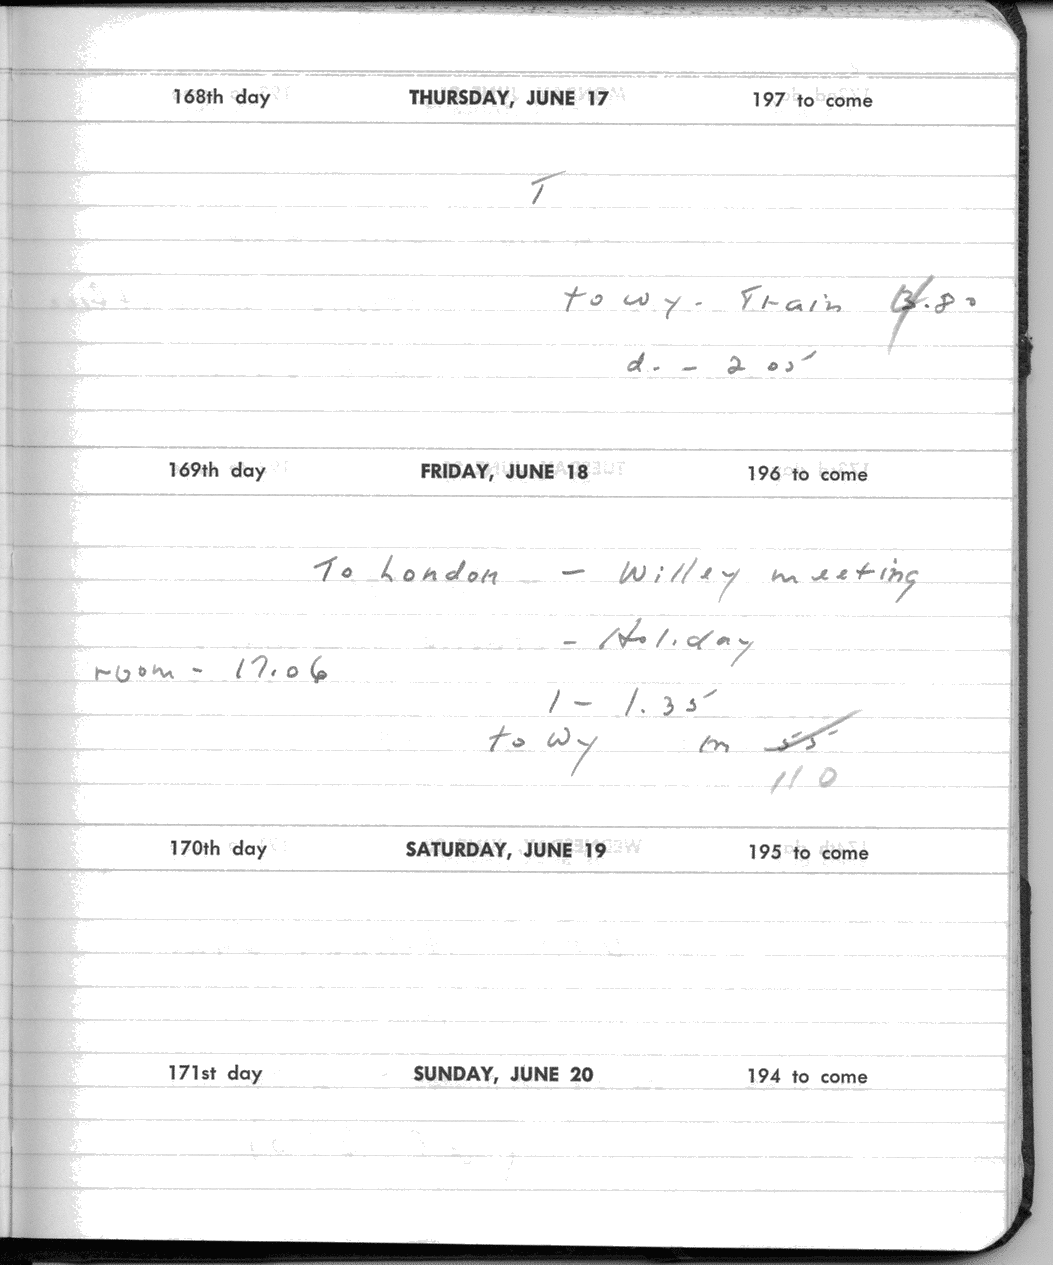 168th day THURSDAY, JUNE 17 197 to come
T
to wy - Train 3.80
d. - 2 05
169th day FRIDAY, JUNE 18 196 to come
To London - Willey meeting
- Holiday
room - 17.06
1 - 1.35
to Wy m 55
110
170th day SATURDAY, JUNE 19 195 to come
171st day SUNDAY, JUNE 20 194 to come